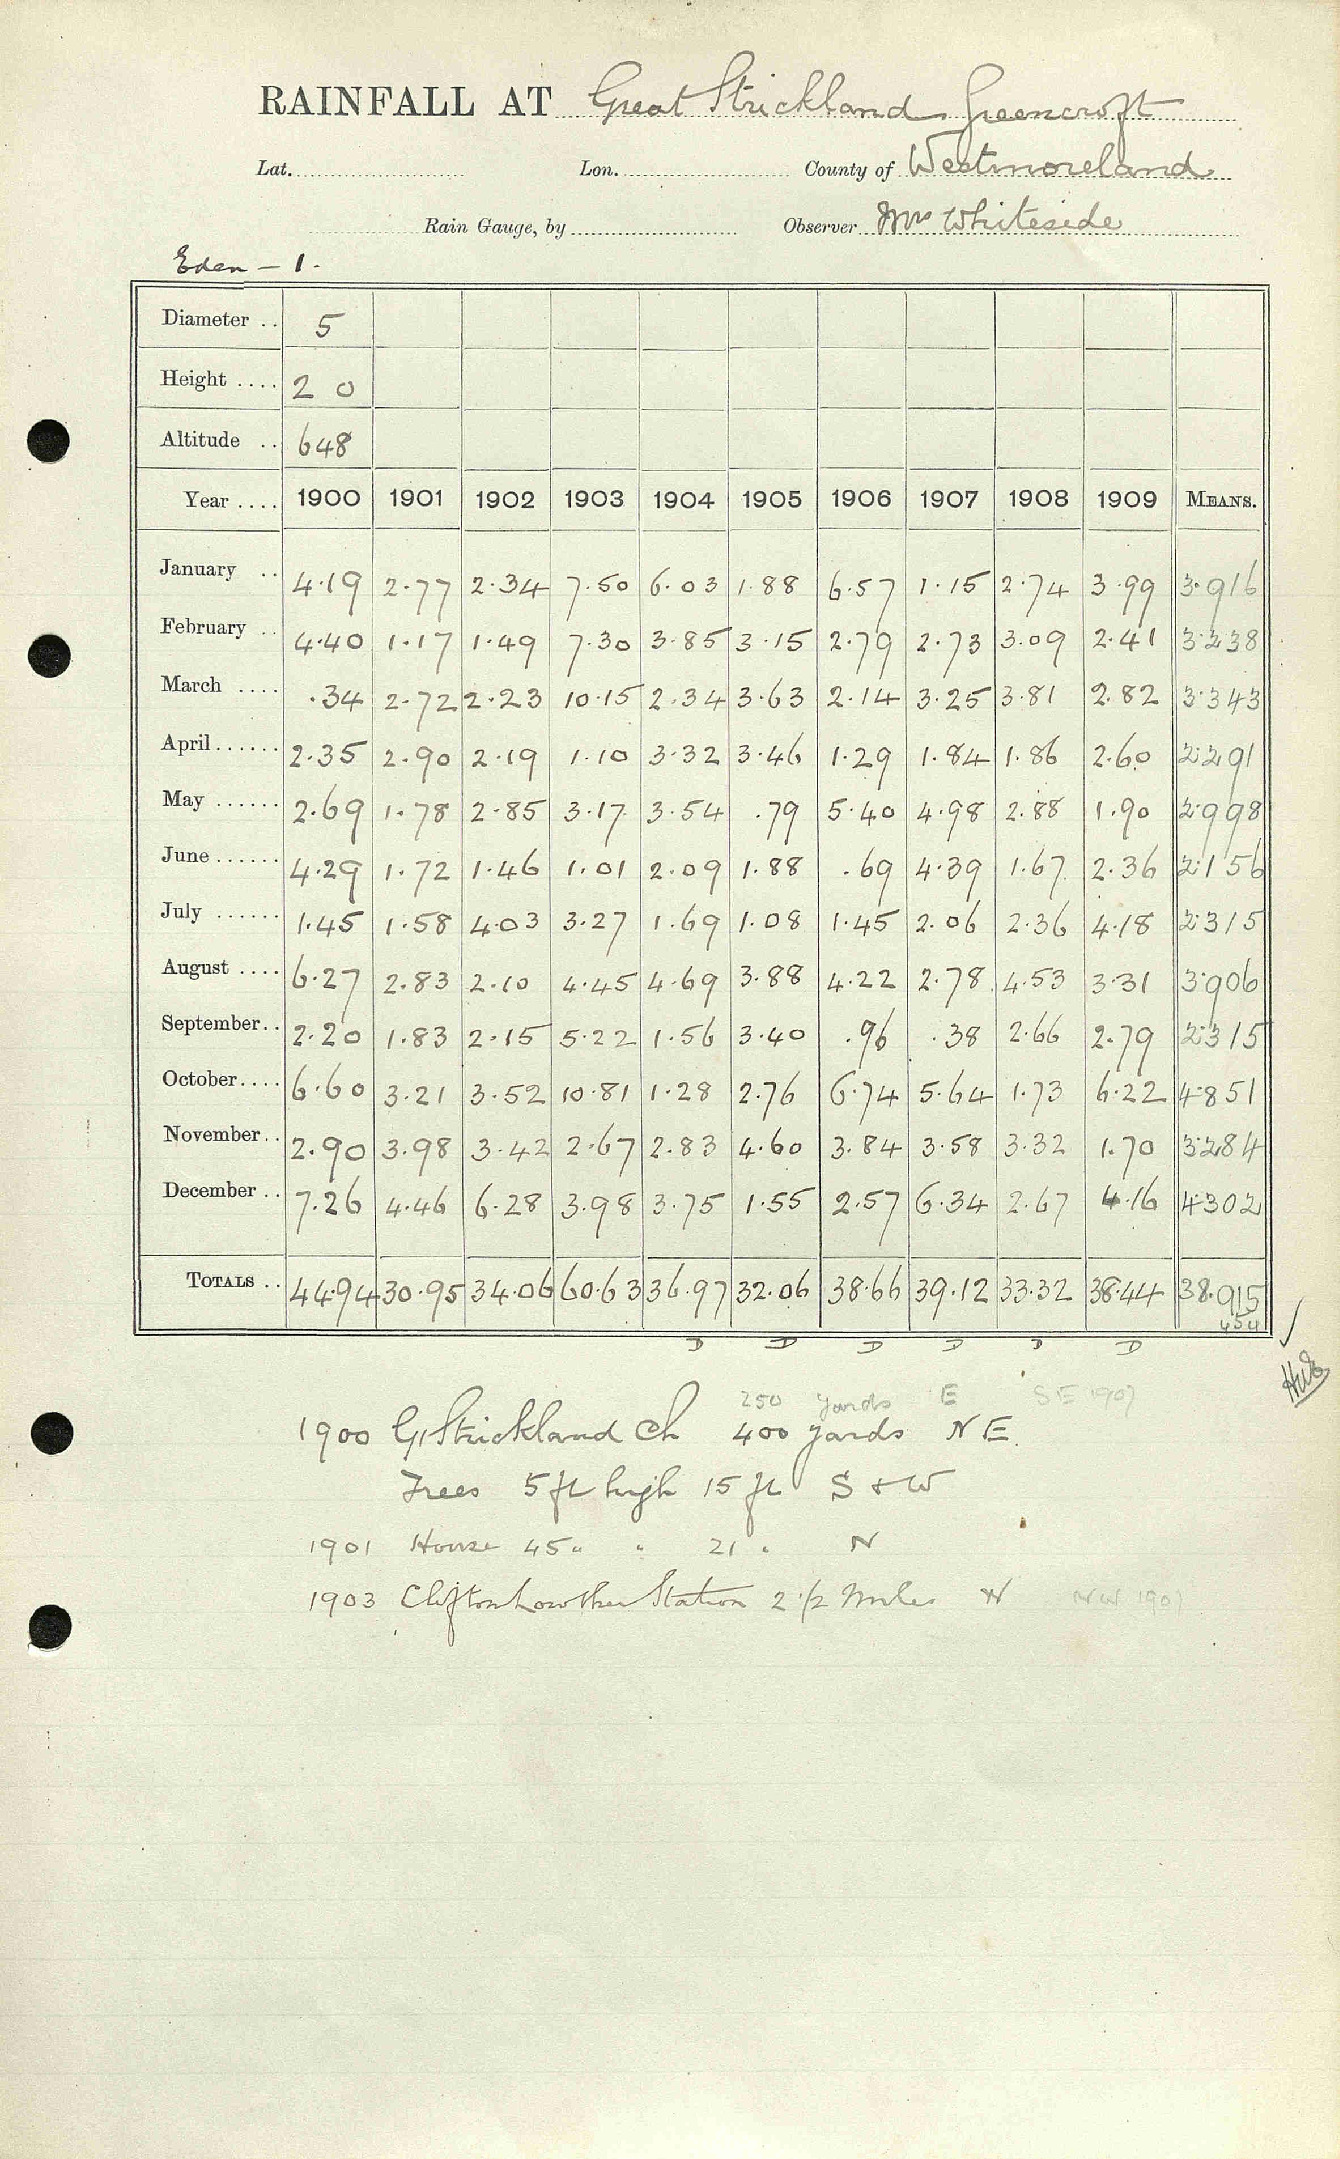 RAINFALL AT Great Strickland Greencroft
Lat. Lon. County of Westmoreland
Rain Gauge, by Observer Mrs Whiteside
Eden – 1.
Diameter .. 5
Height .... 2 0
Altitude .. 648
Year .... 1900 1901 1902 1903 1904 1905 1906 1907 1908 1909 MEANS.
January .. 4.19 2.77 2.34 7.50 6.03 1.88 6.57 1.15 2.74 3.99 3.916
February .. 4.40 1.17 1.49 7.30 3.85 3.15 2.79 2.73 3.09 2.41 3.238
March .... .34 2.72 2.23 10.15 2.34 3.63 2.14 3.25 3.81 2.82 3.343
April ...... 2.35 2.90 2.19 1.10 3.32 3.46 1.29 1.84 1.86 2.60 2.291
May ...... 2.69 1.78 2.85 3.17 3.54 .79 5.40 4.98 2.88 1.90 2.998
June ...... 4.29 1.72 1.46 1.01 2.09 1.88 .69 4.39 1.67 2.36 2.156
July ...... 1.45 1.58 4.03 3.27 1.69 1.08 1.45 2.06 2.36 4.18 2.315
August .... 6.27 2.83 2.10 4.45 4.69 3.88 4.22 2.78 4.53 3.31 3.906
September .. 2.20 1.83 2.15 5.22 1.56 3.40 .96 .38 2.66 2.79 2.315
October .... 6.60 3.21 3.52 10.81 1.28 2.76 6.74 5.64 1.73 6.22 4.851
November .. 2.90 3.98 3.42 2.67 2.83 4.60 3.84 3.58 3.32 1.70 3.284
December .. 7.26 4.46 6.28 3.98 3.75 1.55 2.57 6.34 2.67 4.16 4.302
TOTALS .. 44.94 30.95 34.06 60.63 36.97 32.06 38.66 39.12 33.32 38.44 38.915
D D D D D D
250 yards E SE 1907
1900 Gt Strickland Ch 400 yards NE.
Trees 5 ft high 15 ft S & W
1901 House 45 " " 21 " N
1903 Clifton Lowther Station 2 1/2 Miles W NW 1907